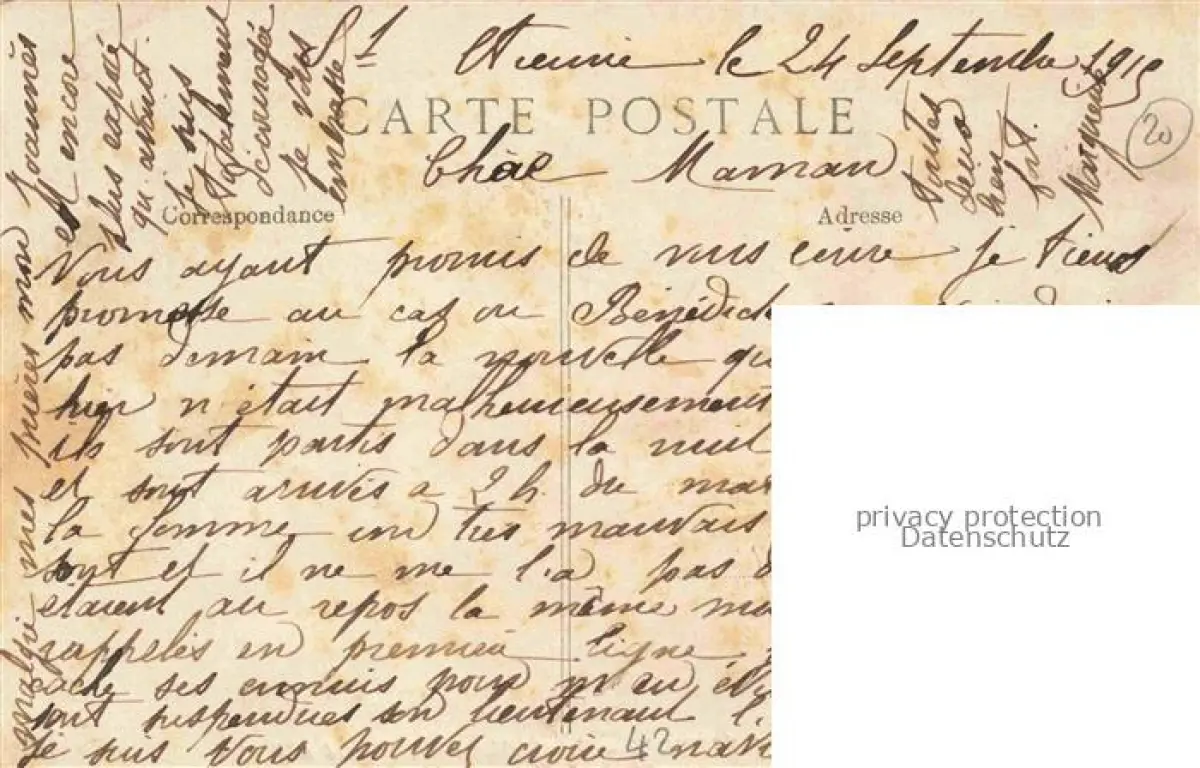 St Etienne le 24 Septembre 1915
CARTE POSTALE
20
Chère Maman
Correspondance
Adresse
Vous ayant promis de vous écrire je tiens
promesse au cas ou Bénédict
pas demain la nouvelle qu
hier n'était malheureusement
ils sont partis dans la nuit
et sont arrivés a 2 h. du ma
la Somme un très mauvais
sont et il ne me l'a pas d
étaient au repos la même
rappelés en première ligne
cache ses ennuis pour m'en
sont suspendues son lieutenant l'
je suis vous pouvez croire navr
42
malgré mes prières mon Joannès
est encore
plus exposé
qu'avant.
Je suis
totalement
découragée
Je vous
embrasse
toutes
deux
bien
frt.
Marguerite
privacy protection
Datenschutz